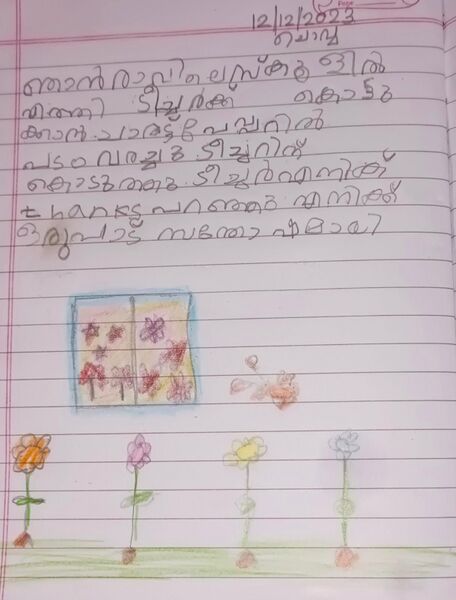 Page
12/12/2023
ചൊവ്വ
ഞാൻ രാവിലെ സ്കൂളിൽ
എത്തി ടീച്ചർക്ക് കൊടു
ക്കാൻ ചാർട്ട് പേപ്പറിൽ
പടം വരച്ചു ടീച്ചറിന്
കൊടുത്തു ടീച്ചർ എനിക്ക്
thanks പറഞ്ഞു എനിക്ക്
ഒരുപാട് സന്തോഷമായി